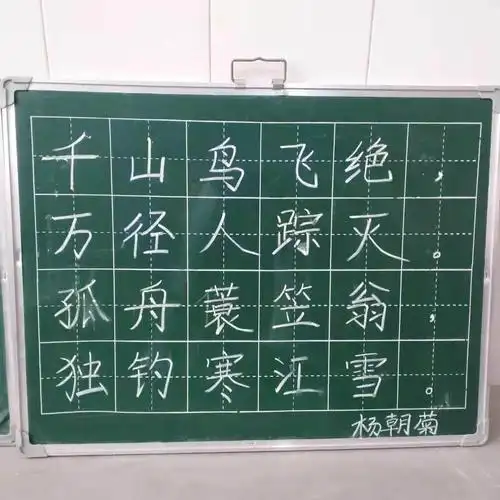 千山鸟飞绝，
万径人踪灭。
孤舟蓑笠翁，
独钓寒江雪。
杨朝菊